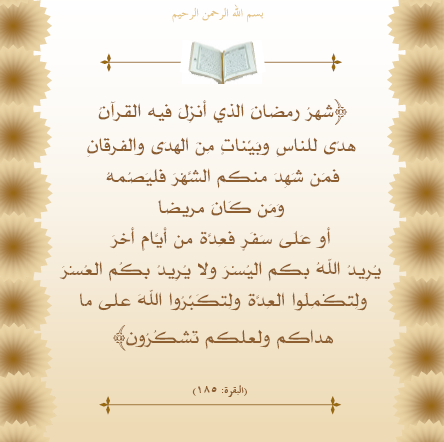 بسم الله الرحمن الرحيم
﴿شهرُ رمضانَ الذي أنزِلَ فيه القرآنُ
هدى للناس وبَيّناتٍ من الهدى والفرقانِ
فمَن شهِدَ منكم الشّهْرَ فليَصُمهُ
وَمَن كَانَ مريضا
أو على سَفَرٍ فعِدّة من أيّامٍ أخرَ
يُريدُ اللهُ بكم اليُسرَ ولا يُريدُ بكُم العُسرَ
ولتكْمِلوا العِدّةَ ولتكَبّرُوا اللهَ على ما
هداكم ولعلكم تشكُرُون﴾
(البقرة: ١٨٥)